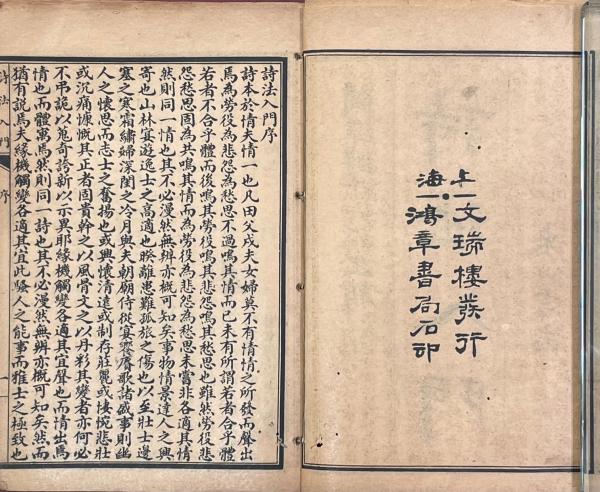 上海
文瑞樓發行
鴻章書局石印
詩法入門序
詩本於情夫情一也凡田父戍夫女婦莫不有情情之所發而聲出
焉為勞役為悲怨為愁思不過鳴其情而已未有所謂若者合乎體
若者不合乎體而後鳴其勞役鳴其悲怨鳴其愁思也雖然勞役悲
怨愁思固為共鳴其情而為勞役為悲怨為愁思未嘗非各適其情
然則同一情也其不必漫然無辨亦概可知矣事物情景達人之興
寄也山林宴遊逸士之高適也暌離患難孤旅之傷也以至壯士邊
塞之寒霜繡婦深閨之冷月與夫朝廟侍從宴饗賡歌諸盛事則幽
人之懷思而志士之奮揚也或興懷清遠或制存莊麗或悽惋悲壯
或沉痛慷慨其正者固貴幹之以風骨文之以丹彩其變者亦何必
不弔詭以蒐奇誇新以示異耶緣機觸變各適其宜聲也而情出焉
情也而體寓焉然則同一詩也其不必漫然無辨亦概可知矣然而
猶有說焉夫緣機觸變各適其宜此騷人之能事而雅士之極致也
詩法入門 序 一